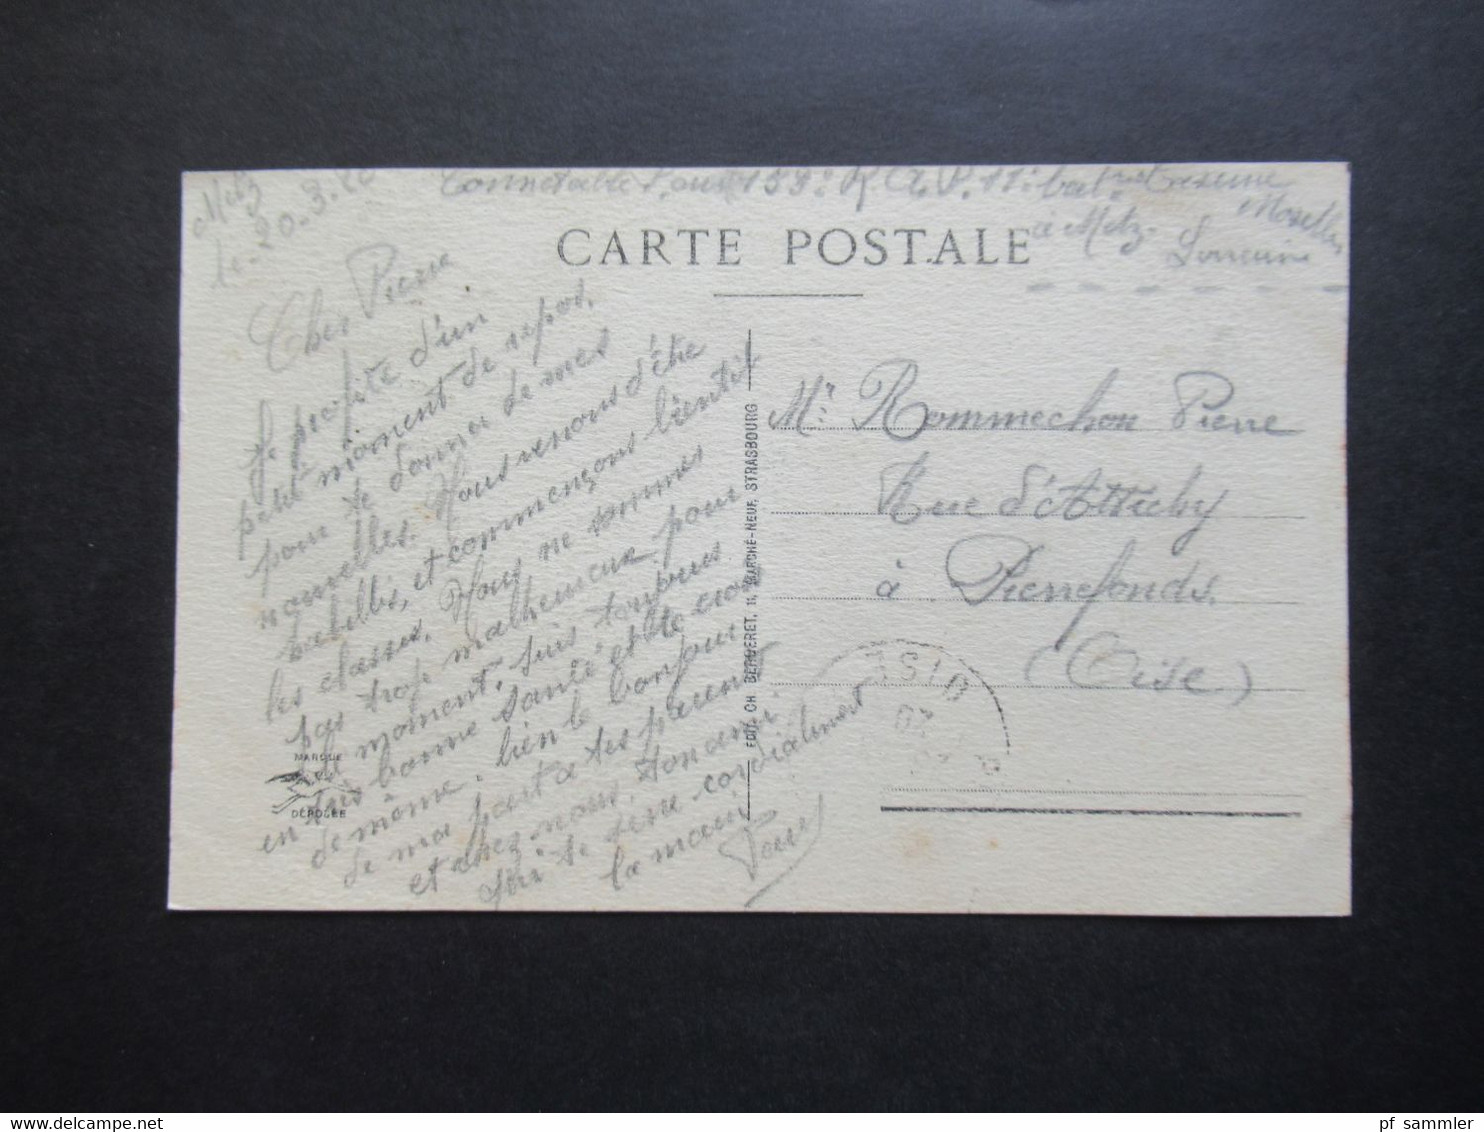 Metz
le 20.3.20
Connétable 159e R 11e bat Caserne
Moselle
à Metz. Lorraine
CARTE POSTALE
Cher Pierre
Je profite d'un
petit moment de repos.
pour te donner de mes
nouvelles. Nous venons d'être
habillés, et commençons bientôt
les classes. Nous ne sommes
pas trop malheureux pour
le moment, suis toujours
en très bonne santé, et te crois
de même, bien le bonjour
de ma part à tes parents
et chez nous, ton ami
qui te serre cordialement
la main
MARQUE
DÉPOSÉE
EDIT. CH BERGERET, 11, MARCHÉ-NEUF, STRASBOURG
Mr. Rommechon Pierre
Rue d'Attichy
à Pierrefonds.
(Oise)
OISE